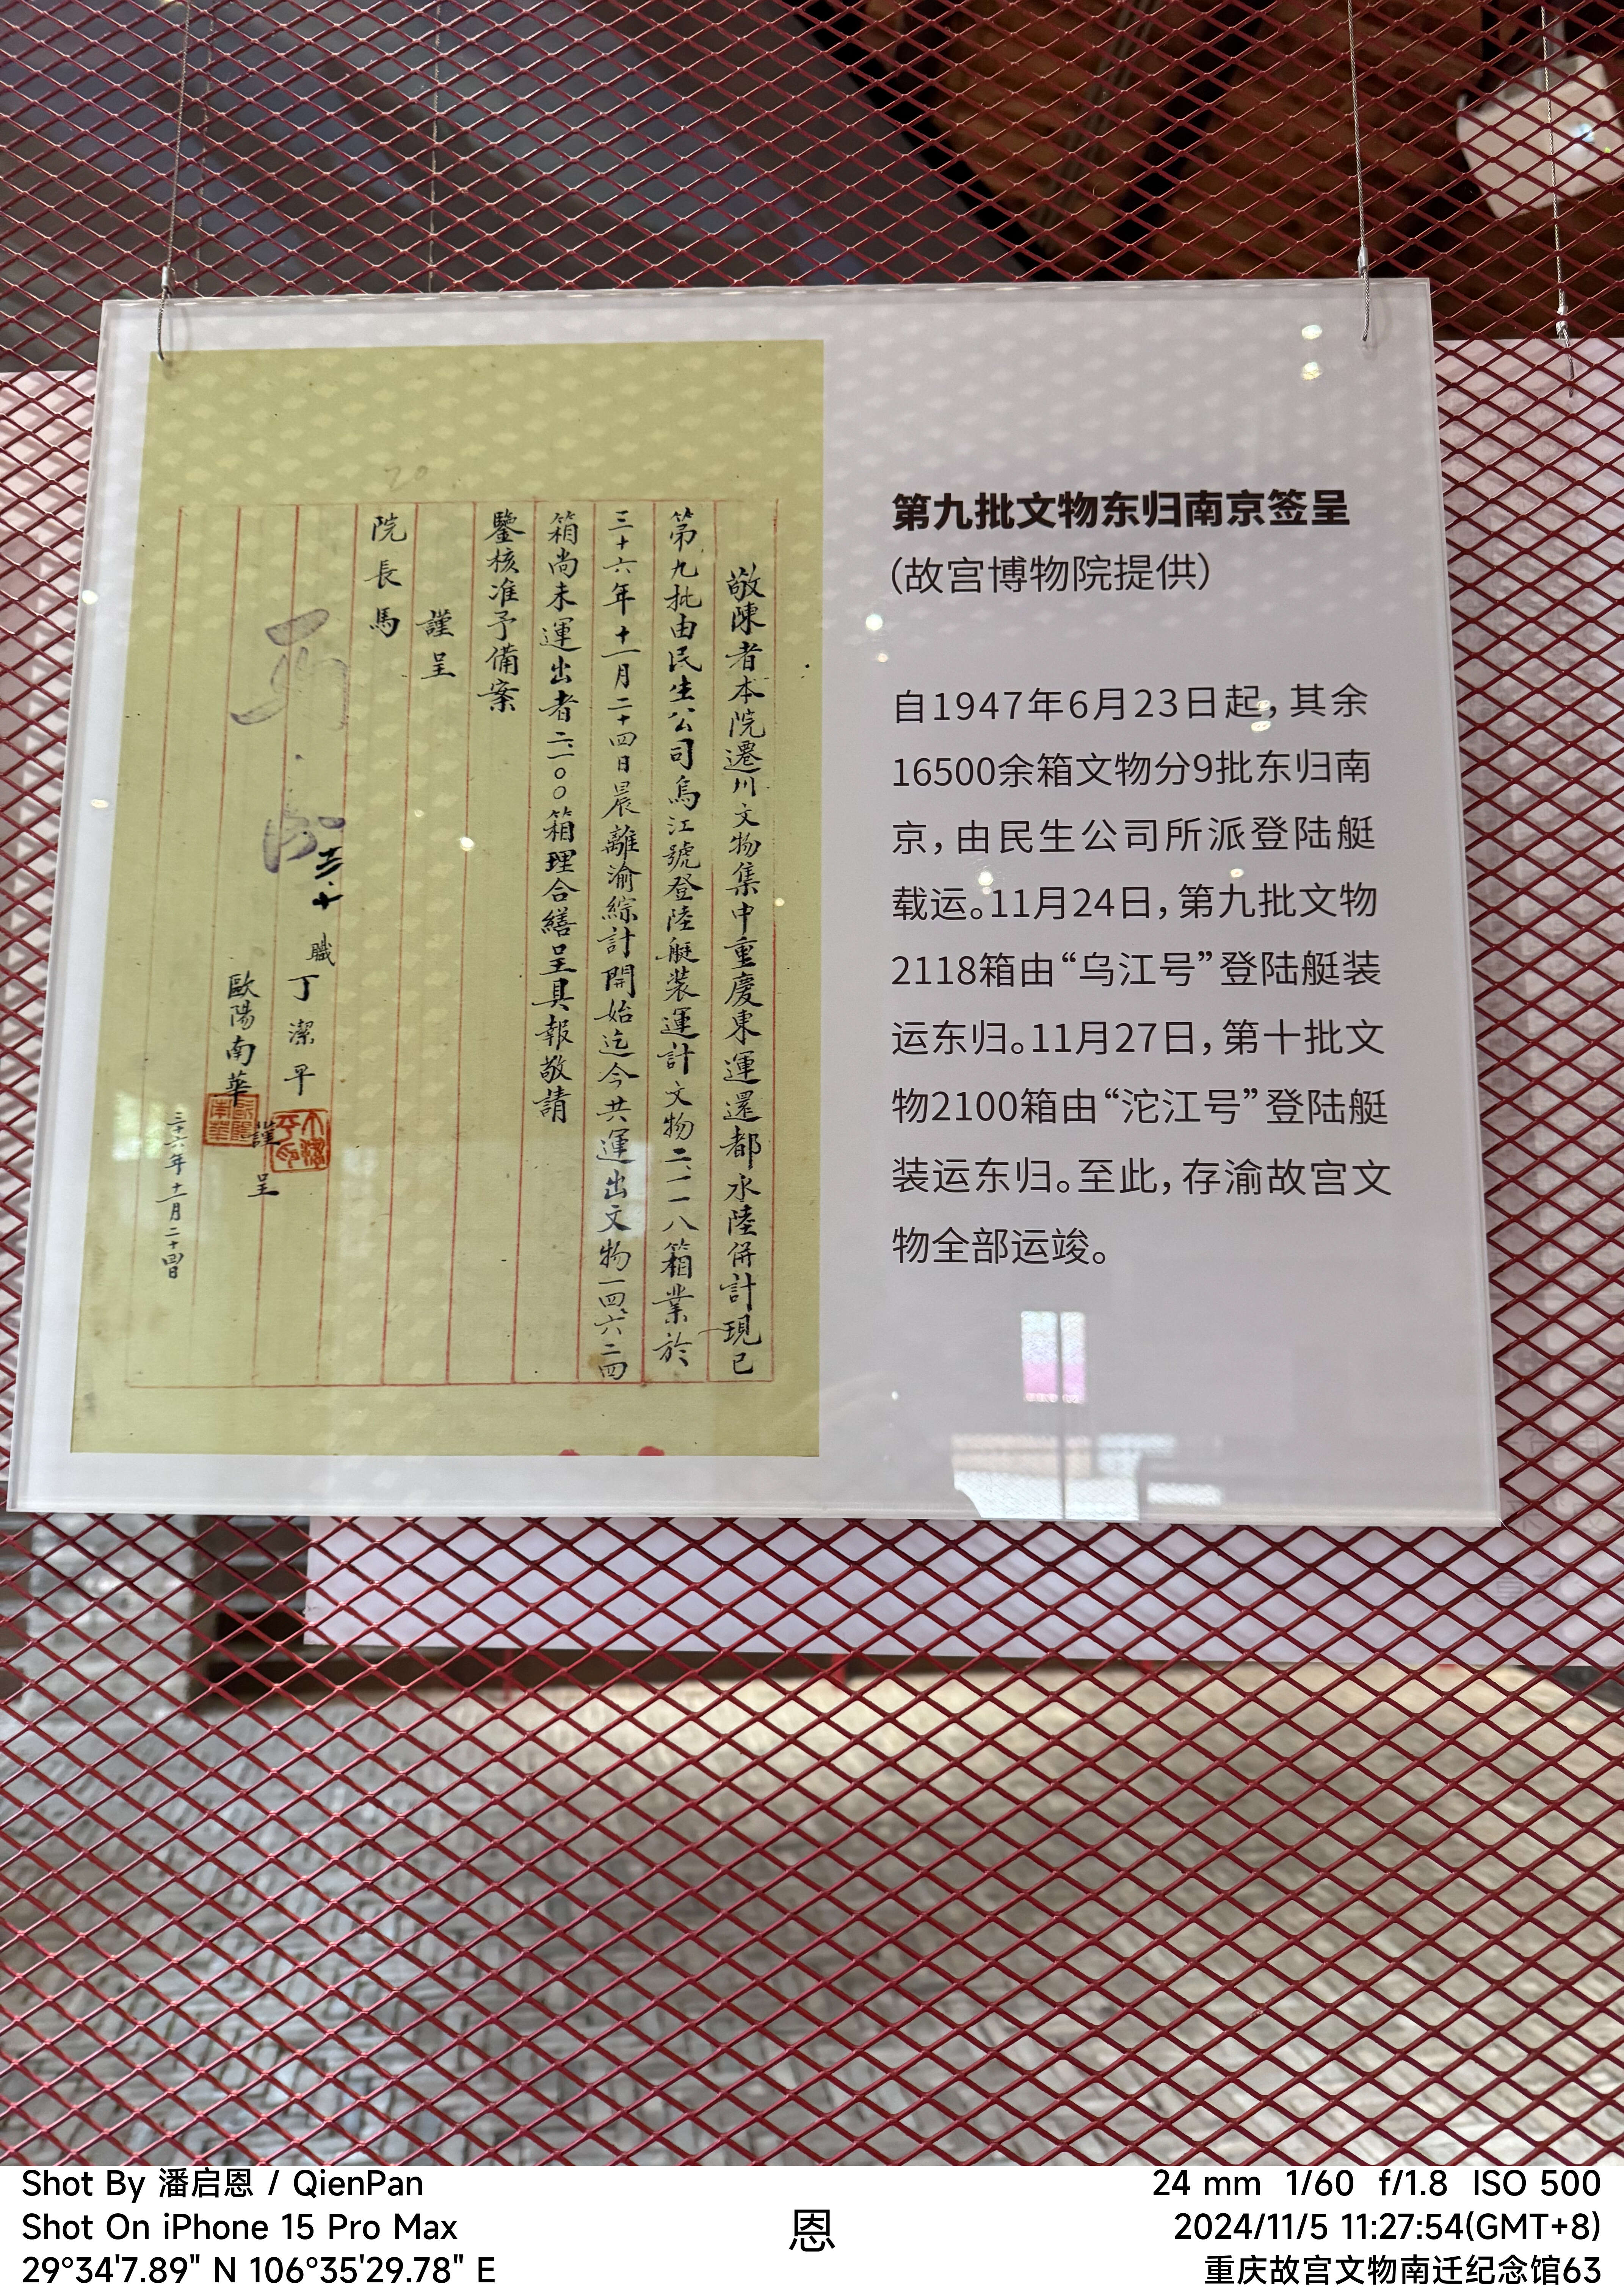 敬陳者本院遷川文物集中重慶東運還都水陸併計現已
第九批由民生公司烏江號登陸艇裝運計文物二、一一八箱業於
三十六年十一月二十四日晨離渝綜計開始迄今共運出文物一四、六二四
箱尚未運出者二、一〇〇箱理合繕呈具報敬請
鑒核准予備案
謹呈
院長馬
職丁潔平
歐陽南華
謹呈
三十六年十一月二十四日
第九批文物东归南京签呈
（故宫博物院提供）
自1947年6月23日起，其余
16500余箱文物分9批东归南
京，由民生公司所派登陆艇
载运。11月24日，第九批文物
2118箱由“乌江号”登陆艇装
运东归。11月27日，第十批文
物2100箱由“沱江号”登陆艇
装运东归。至此，存渝故宫文
物全部运竣。
Shot By 潘启恩 / QienPan
Shot On iPhone 15 Pro Max
29°34'7.89" N 106°35'29.78" E
恩
24 mm 1/60 f/1.8 ISO 500
2024/11/5 11:27:54(GMT+8)
重庆故宫文物南迁纪念馆63